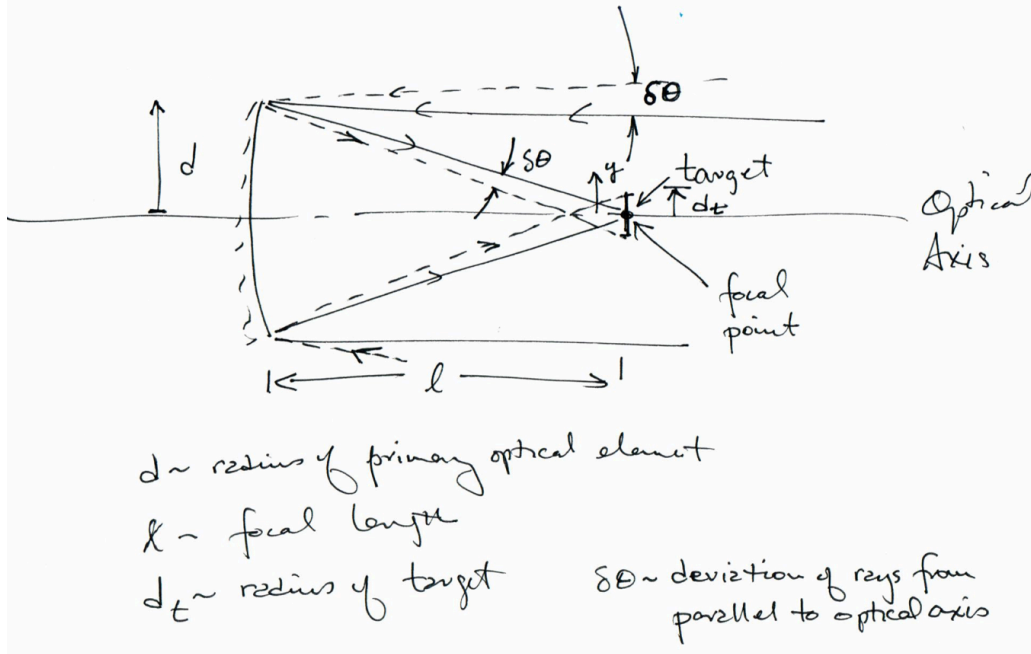 δθ
d
δθ
y
target
d_t
Optical
Axis
focal
point
l
d ~ radius of primary optical element
l ~ focal length
d_t ~ radius of target
δθ ~ deviation of rays from
parallel to optical axis